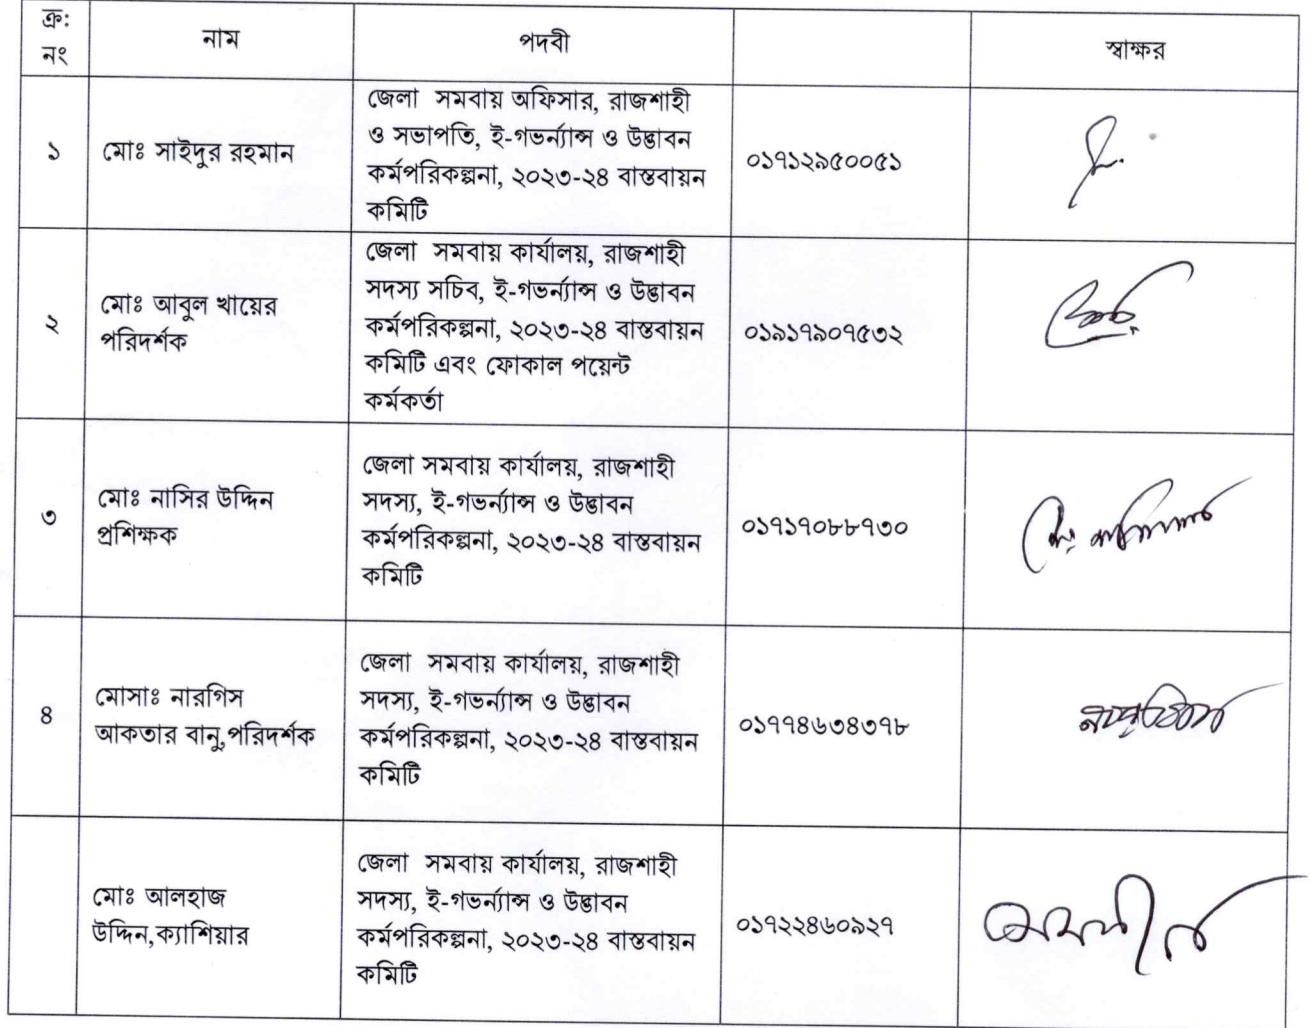 ক্র:
নং
নাম
পদবী
স্বাক্ষর
১
মোঃ সাইদুর রহমান
জেলা সমবায় অফিসার, রাজশাহী
ও সভাপতি, ই-গভর্ন্যান্স ও উদ্ভাবন
কর্মপরিকল্পনা, ২০২৩-২৪ বাস্তবায়ন
কমিটি
০১৭১২৯৫০০৫১
২
মোঃ আবুল খায়ের
পরিদর্শক
জেলা সমবায় কার্যালয়, রাজশাহী
সদস্য সচিব, ই-গভর্ন্যান্স ও উদ্ভাবন
কর্মপরিকল্পনা, ২০২৩-২৪ বাস্তবায়ন
কমিটি এবং ফোকাল পয়েন্ট
কর্মকর্তা
০১৯১৭৯০৭৫৩২
৩
মোঃ নাসির উদ্দিন
প্রশিক্ষক
জেলা সমবায় কার্যালয়, রাজশাহী
সদস্য, ই-গভর্ন্যান্স ও উদ্ভাবন
কর্মপরিকল্পনা, ২০২৩-২৪ বাস্তবায়ন
কমিটি
০১৭১৭০৮৮৭৩০
৪
মোসাঃ নারগিস
আকতার বানু,পরিদর্শক
জেলা সমবায় কার্যালয়, রাজশাহী
সদস্য, ই-গভর্ন্যান্স ও উদ্ভাবন
কর্মপরিকল্পনা, ২০২৩-২৪ বাস্তবায়ন
কমিটি
০১৭৭৪৬৩৪৩৭৮
মোঃ আলহাজ
উদ্দিন,ক্যাশিয়ার
জেলা সমবায় কার্যালয়, রাজশাহী
সদস্য, ই-গভর্ন্যান্স ও উদ্ভাবন
কর্মপরিকল্পনা, ২০২৩-২৪ বাস্তবায়ন
কমিটি
০১৭২২৪৬০৯২৭